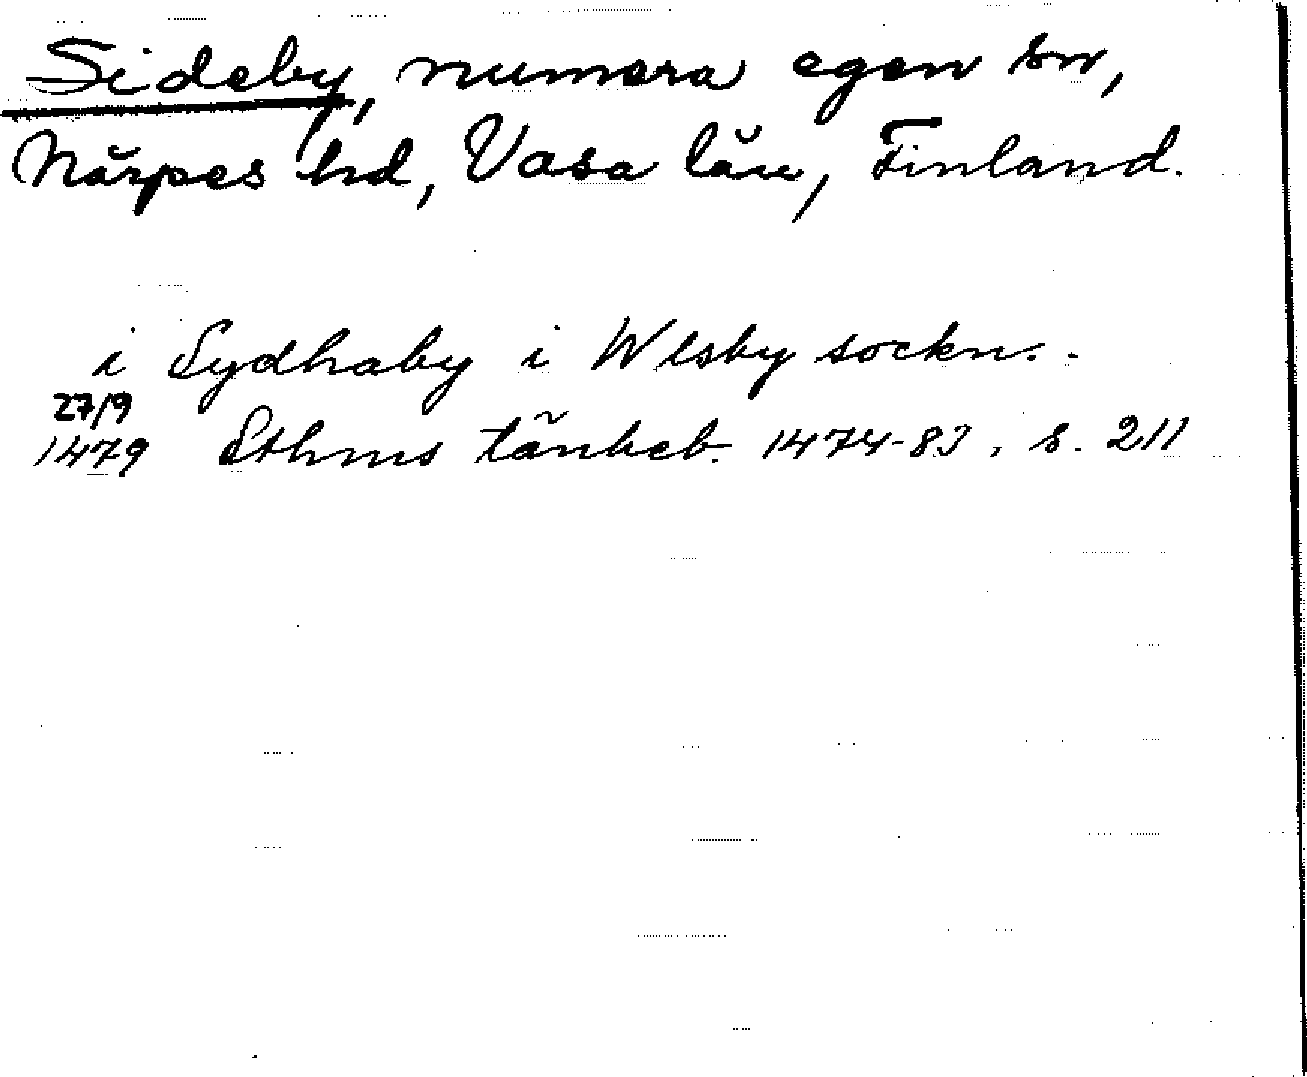 Sideby, numera egen sn,
Närpes hd, Vasa län, Finland.
i Sydhaby i Wlsby sockn. -
27/9
1479 Sthms tänkeb. 1474-83, s. 211